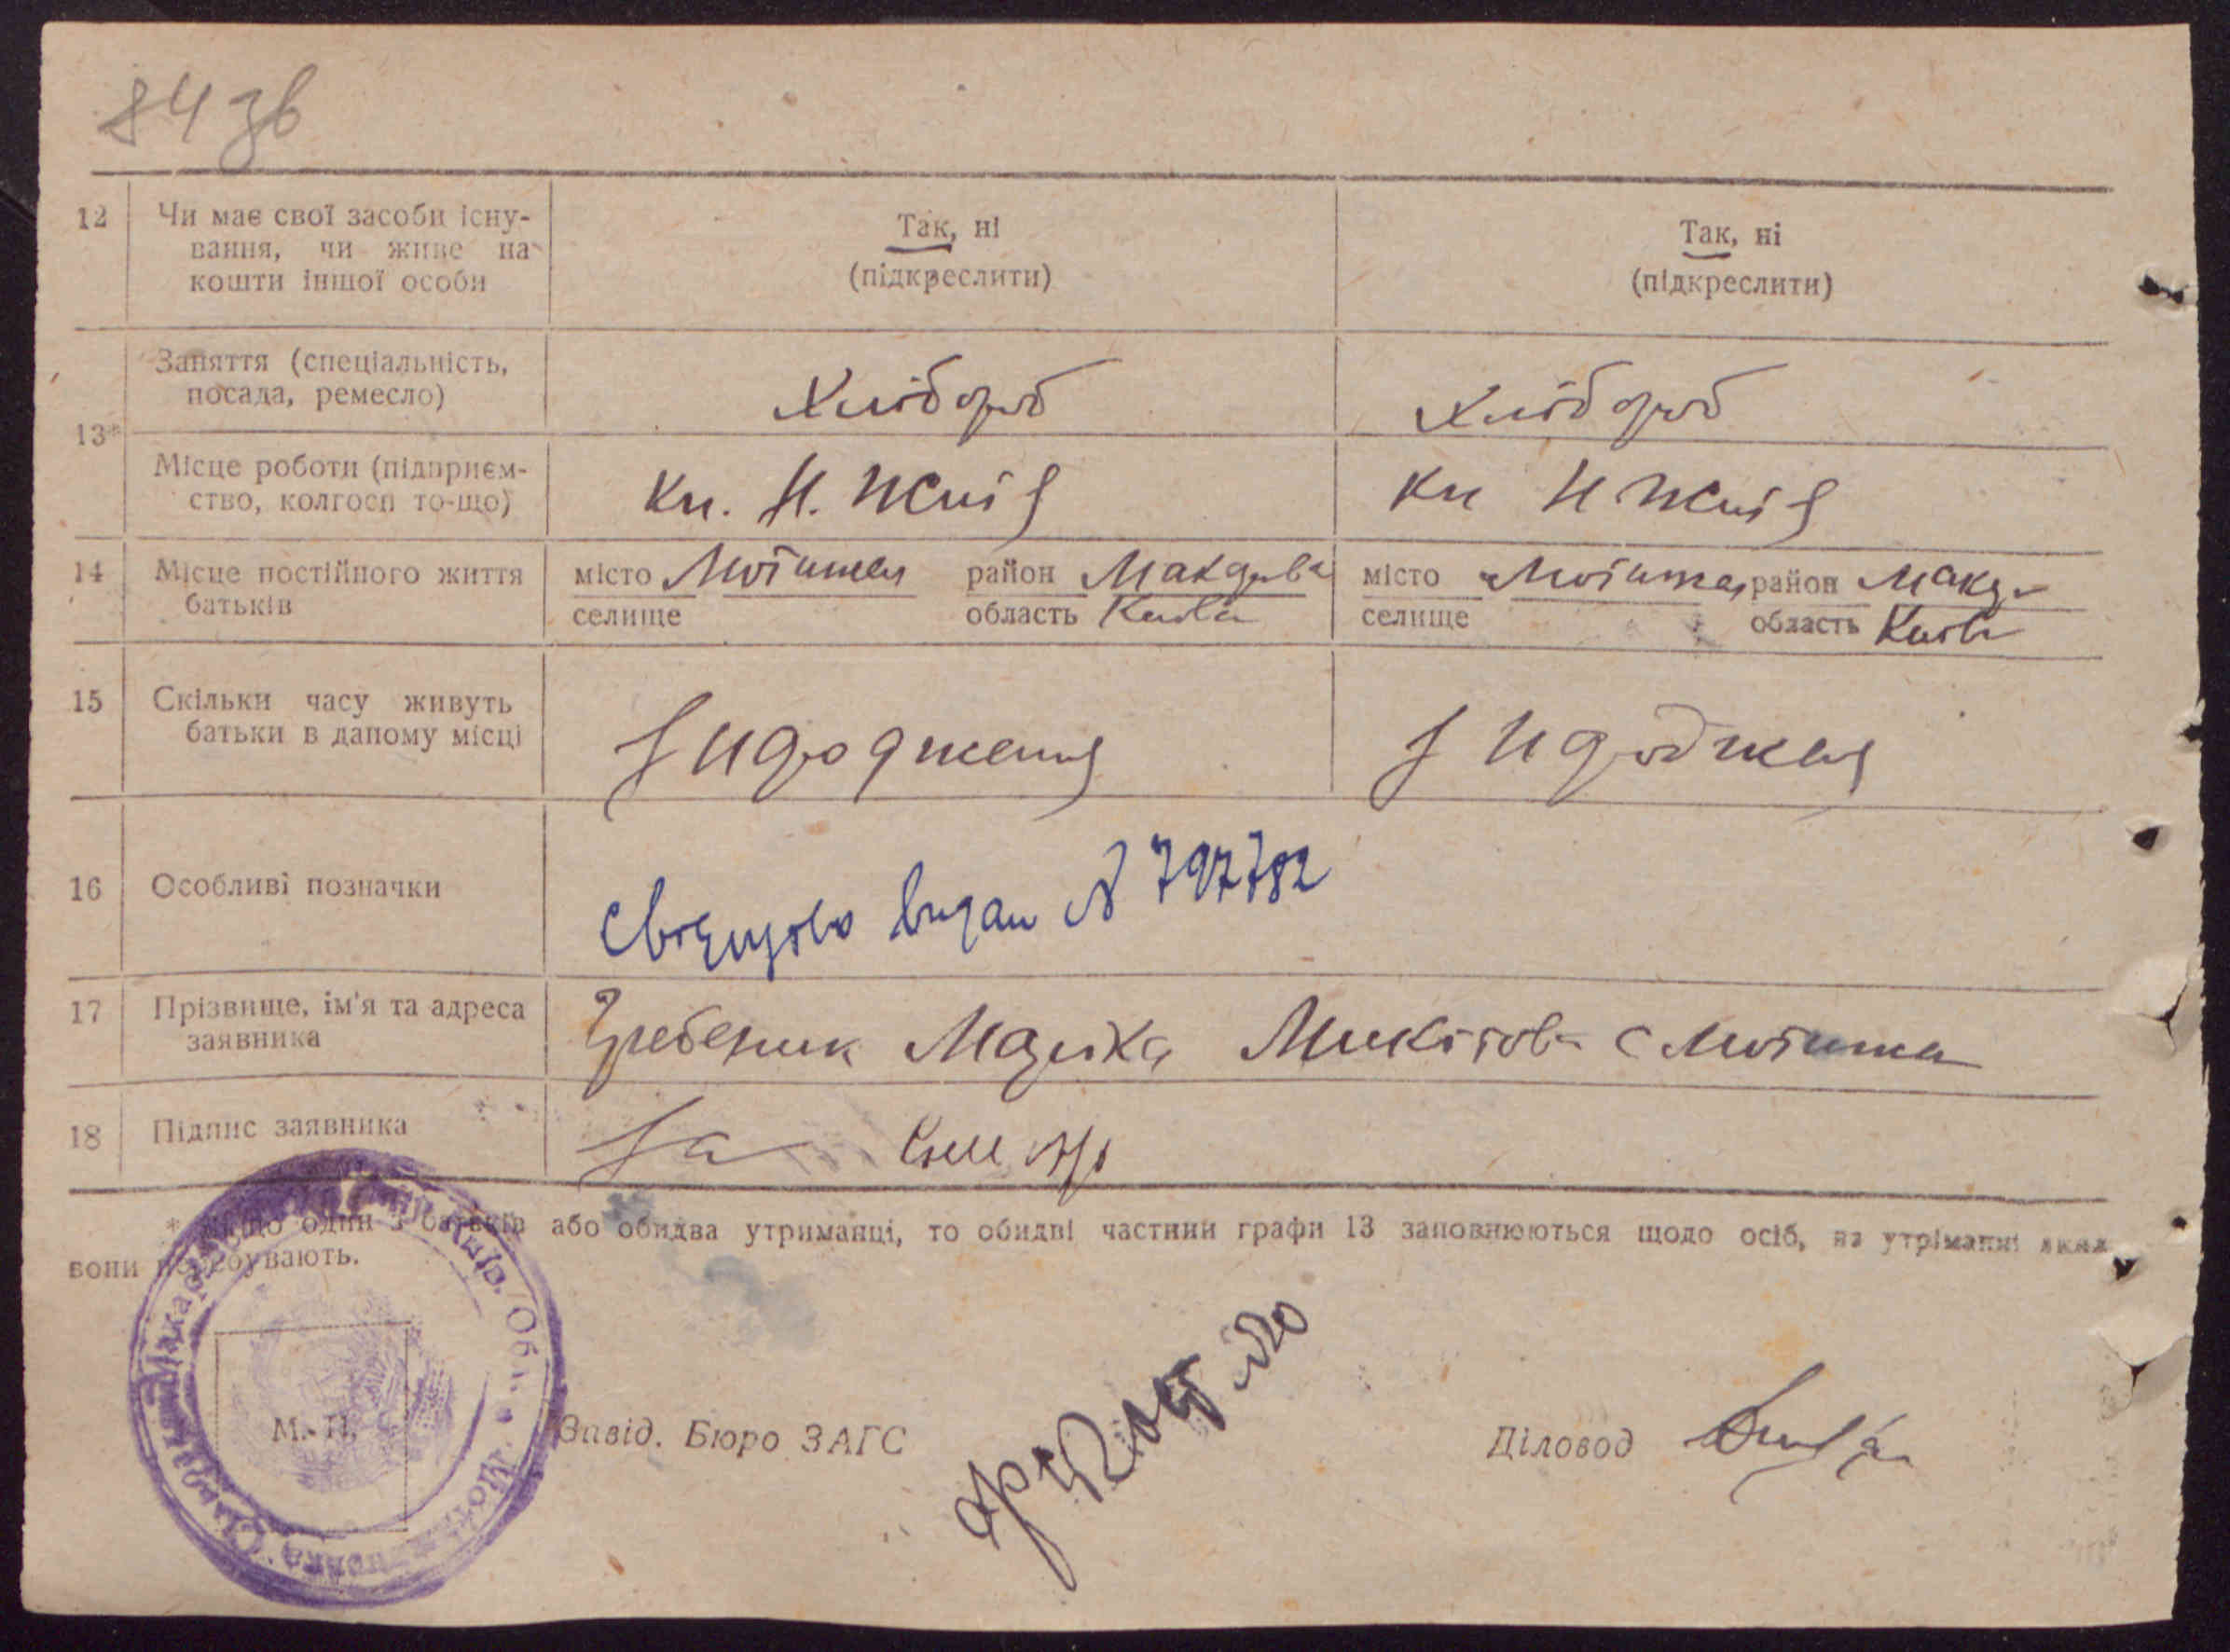 84 зв
12 Чи має свої засоби існу-
вання, чи живе на
кошти іншої особи
Так, ні
(підкреслити)
Так, ні
(підкреслити)
13*
Заняття (спеціальність,
посада, ремесло)
Хлібороб
Хлібороб
Місце роботи (підприєм-
ство, колгосп то-що)
14 Місце постійного життя
батьків
місто Мотижин район Макарів
селище область Київ
місто Мотижин район Мака
селище область Київ
15 Скільки часу живуть
батьки в даному місці
З народження
З народжен
16 Особливі позначки
видан № 797782
17 Прізвище, ім'я та адреса
заявника
Гребеник Микитов с Мотижин
18 Підпис заявника
За
* Якщо один з батьків або обидва утриманці, то обидві частини графи 13 заповнюються щодо осіб, на утріманні яких
вони перебувають.
М. П.
Завід. Бюро ЗАГС
Діловод